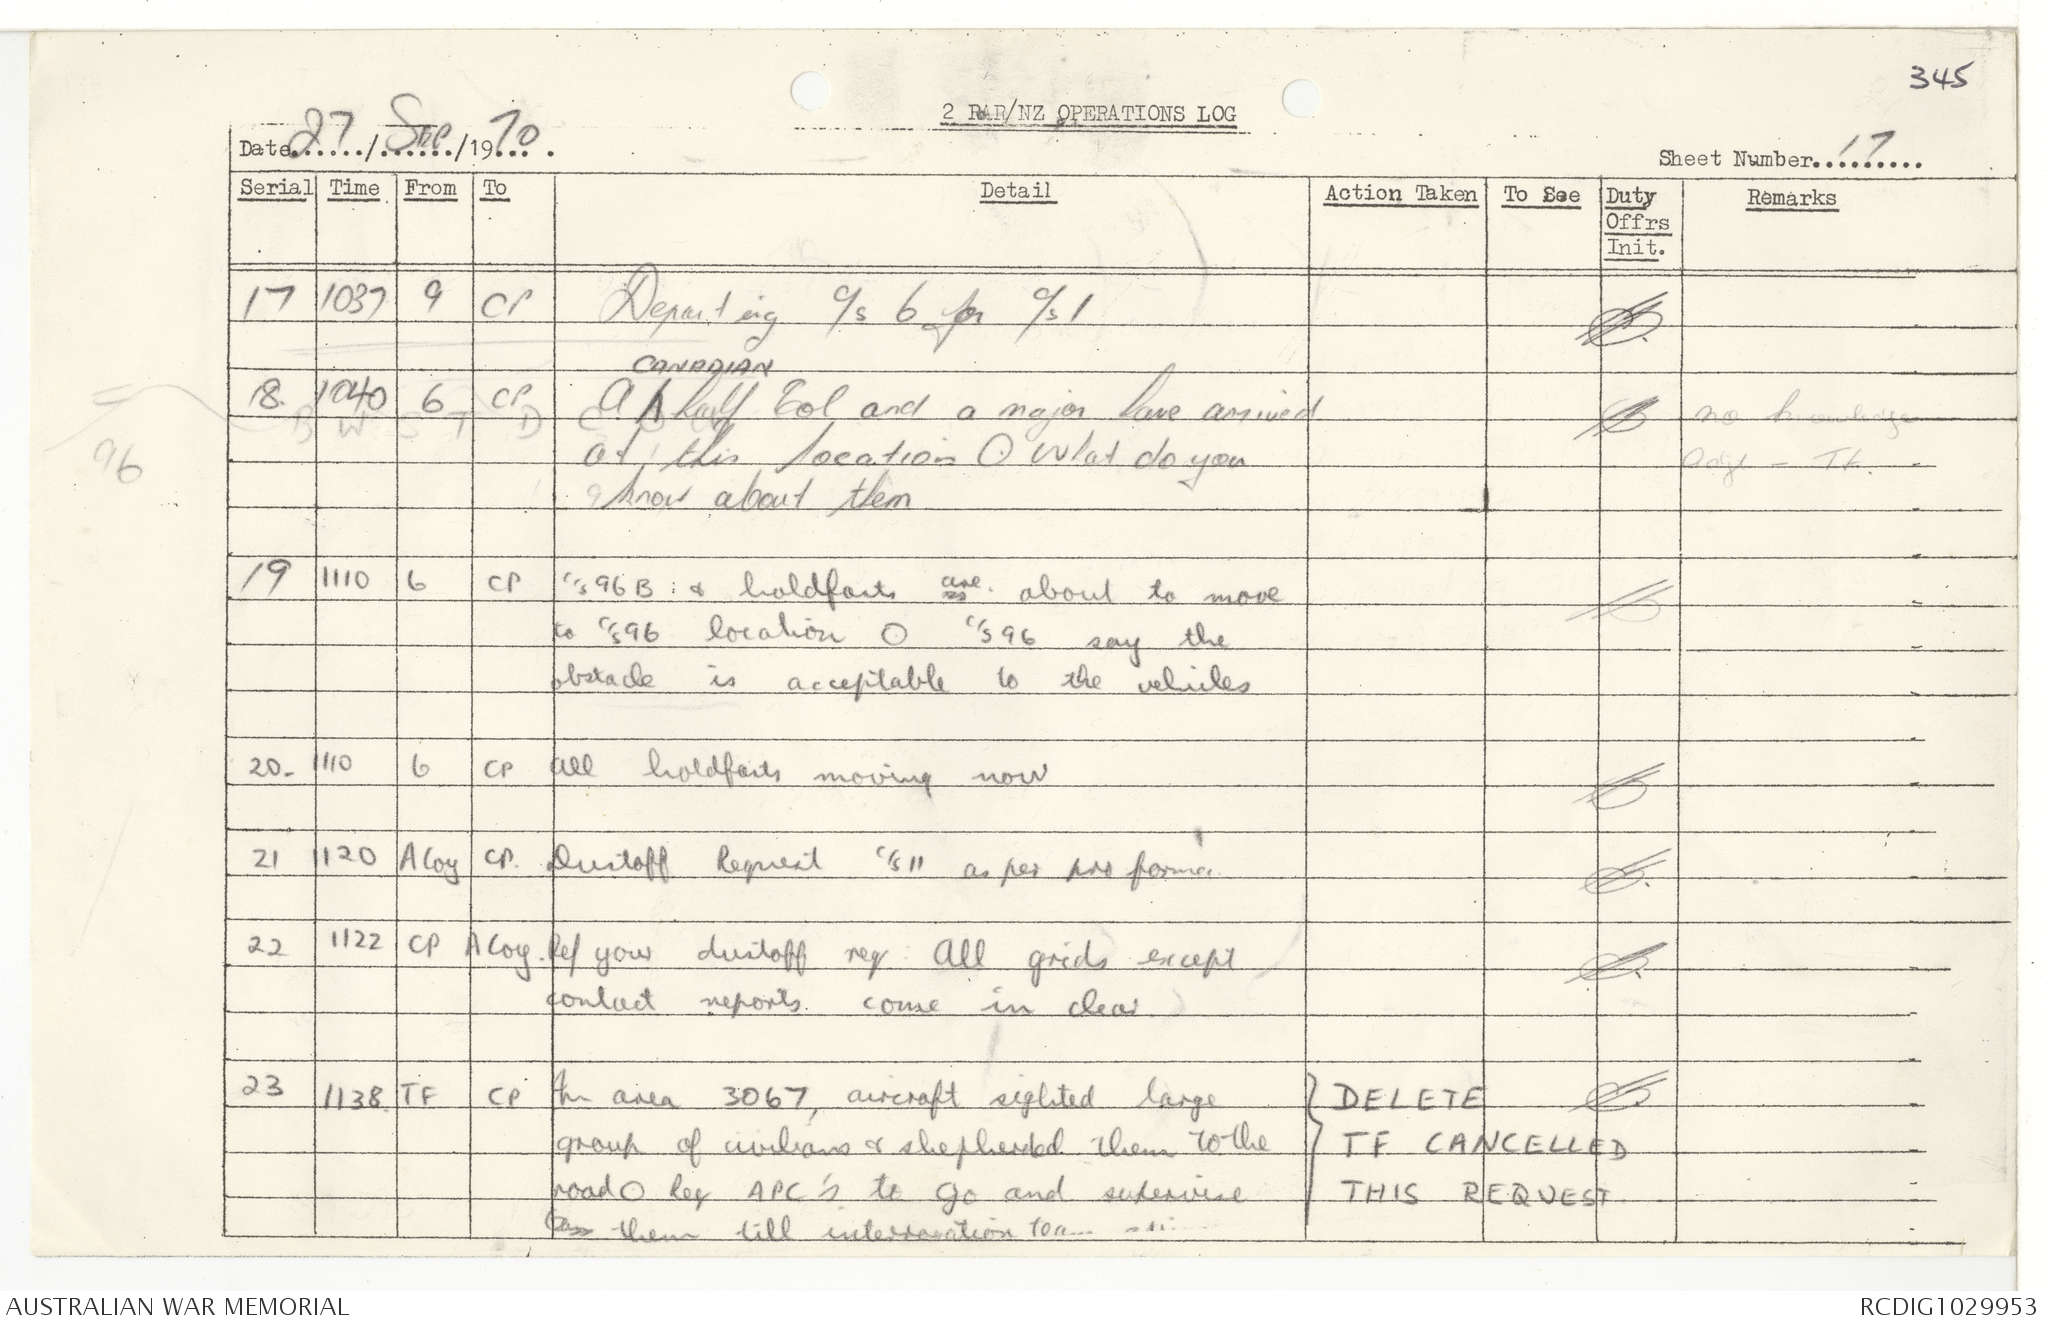 345
2 RAR/NZ OPERATIONS LOG
Date 27/Sep/1970.
Sheet Number 17
Serial Time From To Detail Action Taken To See Duty Offrs Init. Remarks
17 1037 9 CP Departing C/s 6 for C/s 1
CANADIAN
18. 1040 6 CP A half Col and a major have arrived no knowledge
at this location O What do you Adjt - TF.
know about them
96
19 1110 6 CP C/s 96B & holdfasts are about to move
to C/s 96 location O C/s 96 say the
obstacle is acceptable to the vehicles
20- 1110 6 CP All holdfasts moving now
21 1120 A Coy CP. Dustoff Request C/s 11 as per pro forma.
22 1122 CP A Coy. Ref your dustoff req. All grids except
contact reports come in clear
23 1138 TF CP In area 3067, aircraft sighted large DELETE
group of civilians & shepherded them to the TF CANCELLED
road O Req APC's to go and supervise THIS REQUEST
them till interrogation team
AUSTRALIAN WAR MEMORIAL
RCDIG1029953